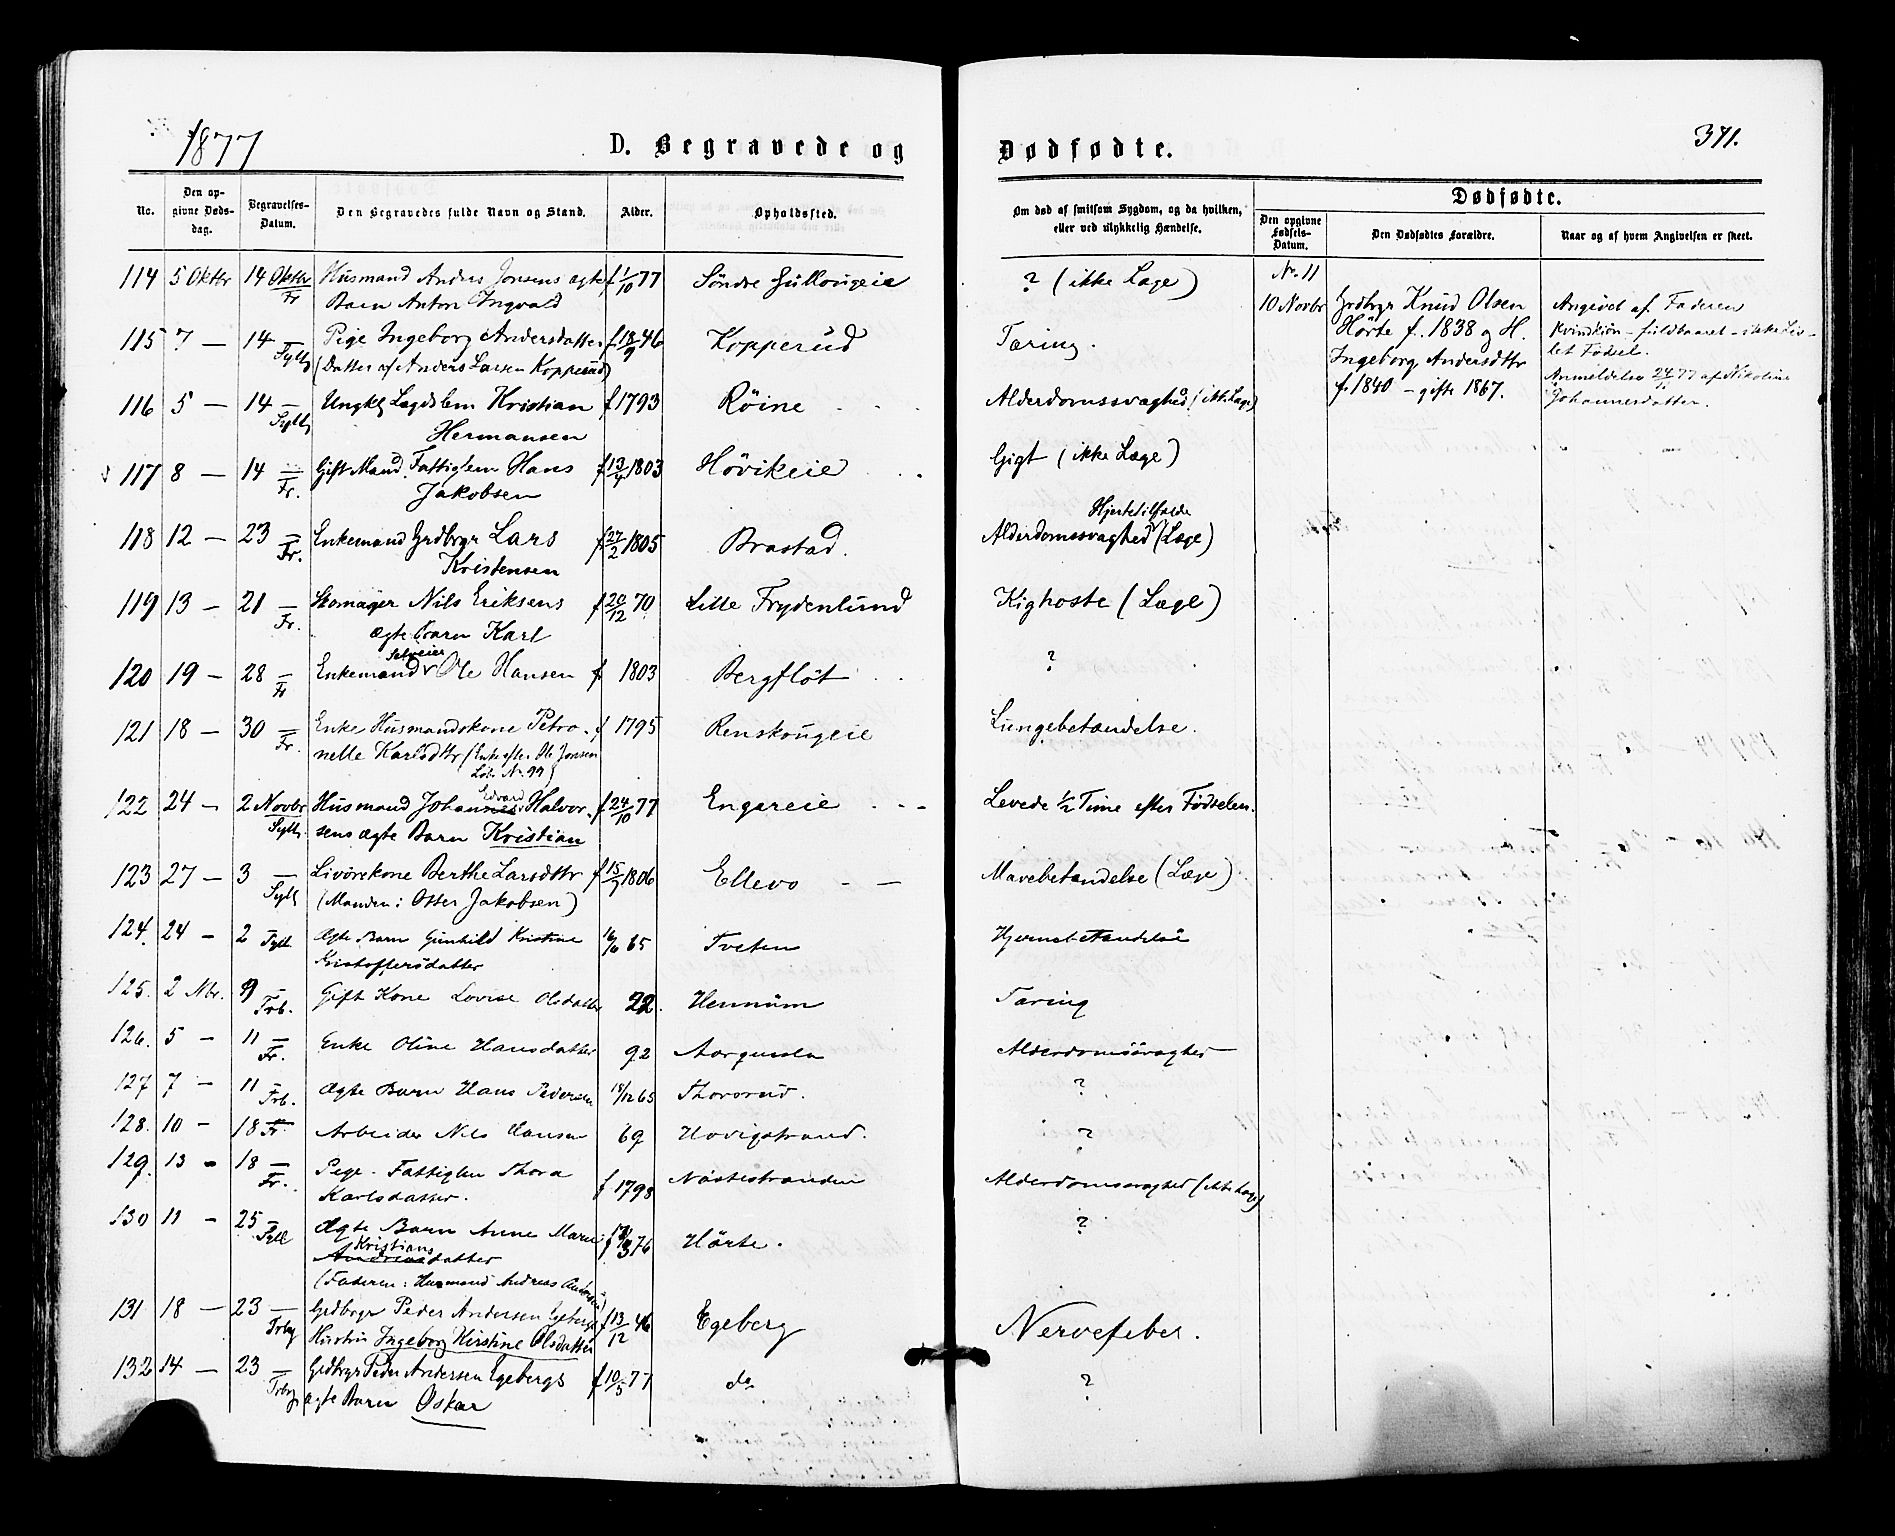 1877
D. Begravede og
Dødfødte.
371.
No.
Den opgivne Døds-
dag.
Begravelses-
Datum.
Den Begravedes fulde Navn og Stand.
Alder.
Opholdssted.
Om død af smitsom Sygdom, og da hvilken,
eller ved ulykkelig Hændelse.
Dødfødte.
Den opgivne
Fødsels-
Datum.
Den Dødfødtes Forældre.
Naar og af hvem Angivelsen er skeet.
114 5 Oktbr 14 Oktbr Fr Husmand Anders Jonsens ægte f 1/10 77 Söndre Gullougeie ? (ikke Læge)
Barn Anton Ingvald
115 7 — 14 — Syll Pige Ingeborg Andersdatter f 18/9 46 Kopperud Tæring.
(Datter af Anders Larsen Kopperud)
116 5 — 14 — Syll Ungkl Lægdslem Kristian f 1793 Röine Alderdomssvaghed (ikke Læge)
Hermansen
117 8 — 14 — Fr. Gift Mand. Fattiglem Hans f 13/4 1803 Hövikeie Gigt (ikke Læge)
Jakobsen
118 12 — 23 — Fr. Enkemand Grdbrgr Lars f 27/2 1805 Brastad. Alderdomssvaghed Hjertetilfælde (Læge)
Kristensen
119 13 — 21 — Fr. Skomager Nils Eriksens f 20/12 70 Lille Frydenlund Kighoste (Læge)
ægte Barn Karl
120 19 — 28 — Fr Enkemand Selveier Ole Hansen f 1803 Bergflöt ?
121 18 — 30 — Fr. Enke Husmandskone Petro- f 1795 Renskougeie Lungebetændelse.
nelle Karlsdttr (Enke efter Ole Jonsen
Löb. No. 99)
122 24 — 2 Novbr Syll. Husmand Johannes Edvard Halvor- f 24/10 77 Engereie Levede 1/2 Time efter Födselen.
sens ægte Barn Kristian
123 27 — 3 — Syll Livörekone Berthe Larsdttr f 15/7 1806 Ellevo — Mavebetændelse (Læge)
(Manden: Otter Jakobsen)
124. 24 — 2 Syll Ægte Barn Gunhild Kristine 16/6 65 Tveten Hjernebetændelse
Kristoffersdatter
125. 2 Nbr. 9 — Trb. Gift Kone Lovise Olsdatter 22. Hennum Tæring
126. 5 — 11 — Fr. Enke Oline Hansdatter 92 Alderdomssvaghed
127 7 — 11 — Frb. Ægte Barn Hans Pedersen 18/12 65 Thorsrud. ?
128. 10 — 18 Fr. Arbeider Nils Hansen 69 Hovigstrand. ?
129. 13 — 18 — Fr. Pige. Fattiglem Thora f 1798 Næstestranden Alderdomssvaghed (ikke Læge)
Karlsdatter.
130 11 — 25 — Syll Ægte Barn Anne Marie 76 Hörte. ?
Kristians
Andreasdatter
(Faderen: Husmand Andreas
131 18 — 23 — Trbg Grdbrgr Peder Andersen Egebergs f 13/12 46 Egeberg Nervefeber.
Hustru Ingeborg Kirstine Olsdatter
132 14 — 23 — Trbg Grdbrgr Peder Andersen Egebergs f 10/5 77 do ?
ægte Barn Oskar
No. 11
10 Novbr Grdbrgr Knud Olsen
Hörte f. 1838 og H.
Ingeborg Andersdttr
f. 1840 — gifte 1867.
Angivet af Faderen
Kvindkjön — fuldbaaret — ikke Lev-
let Födsel.
Anmeldelse af Nikoline
Johannesdatter.